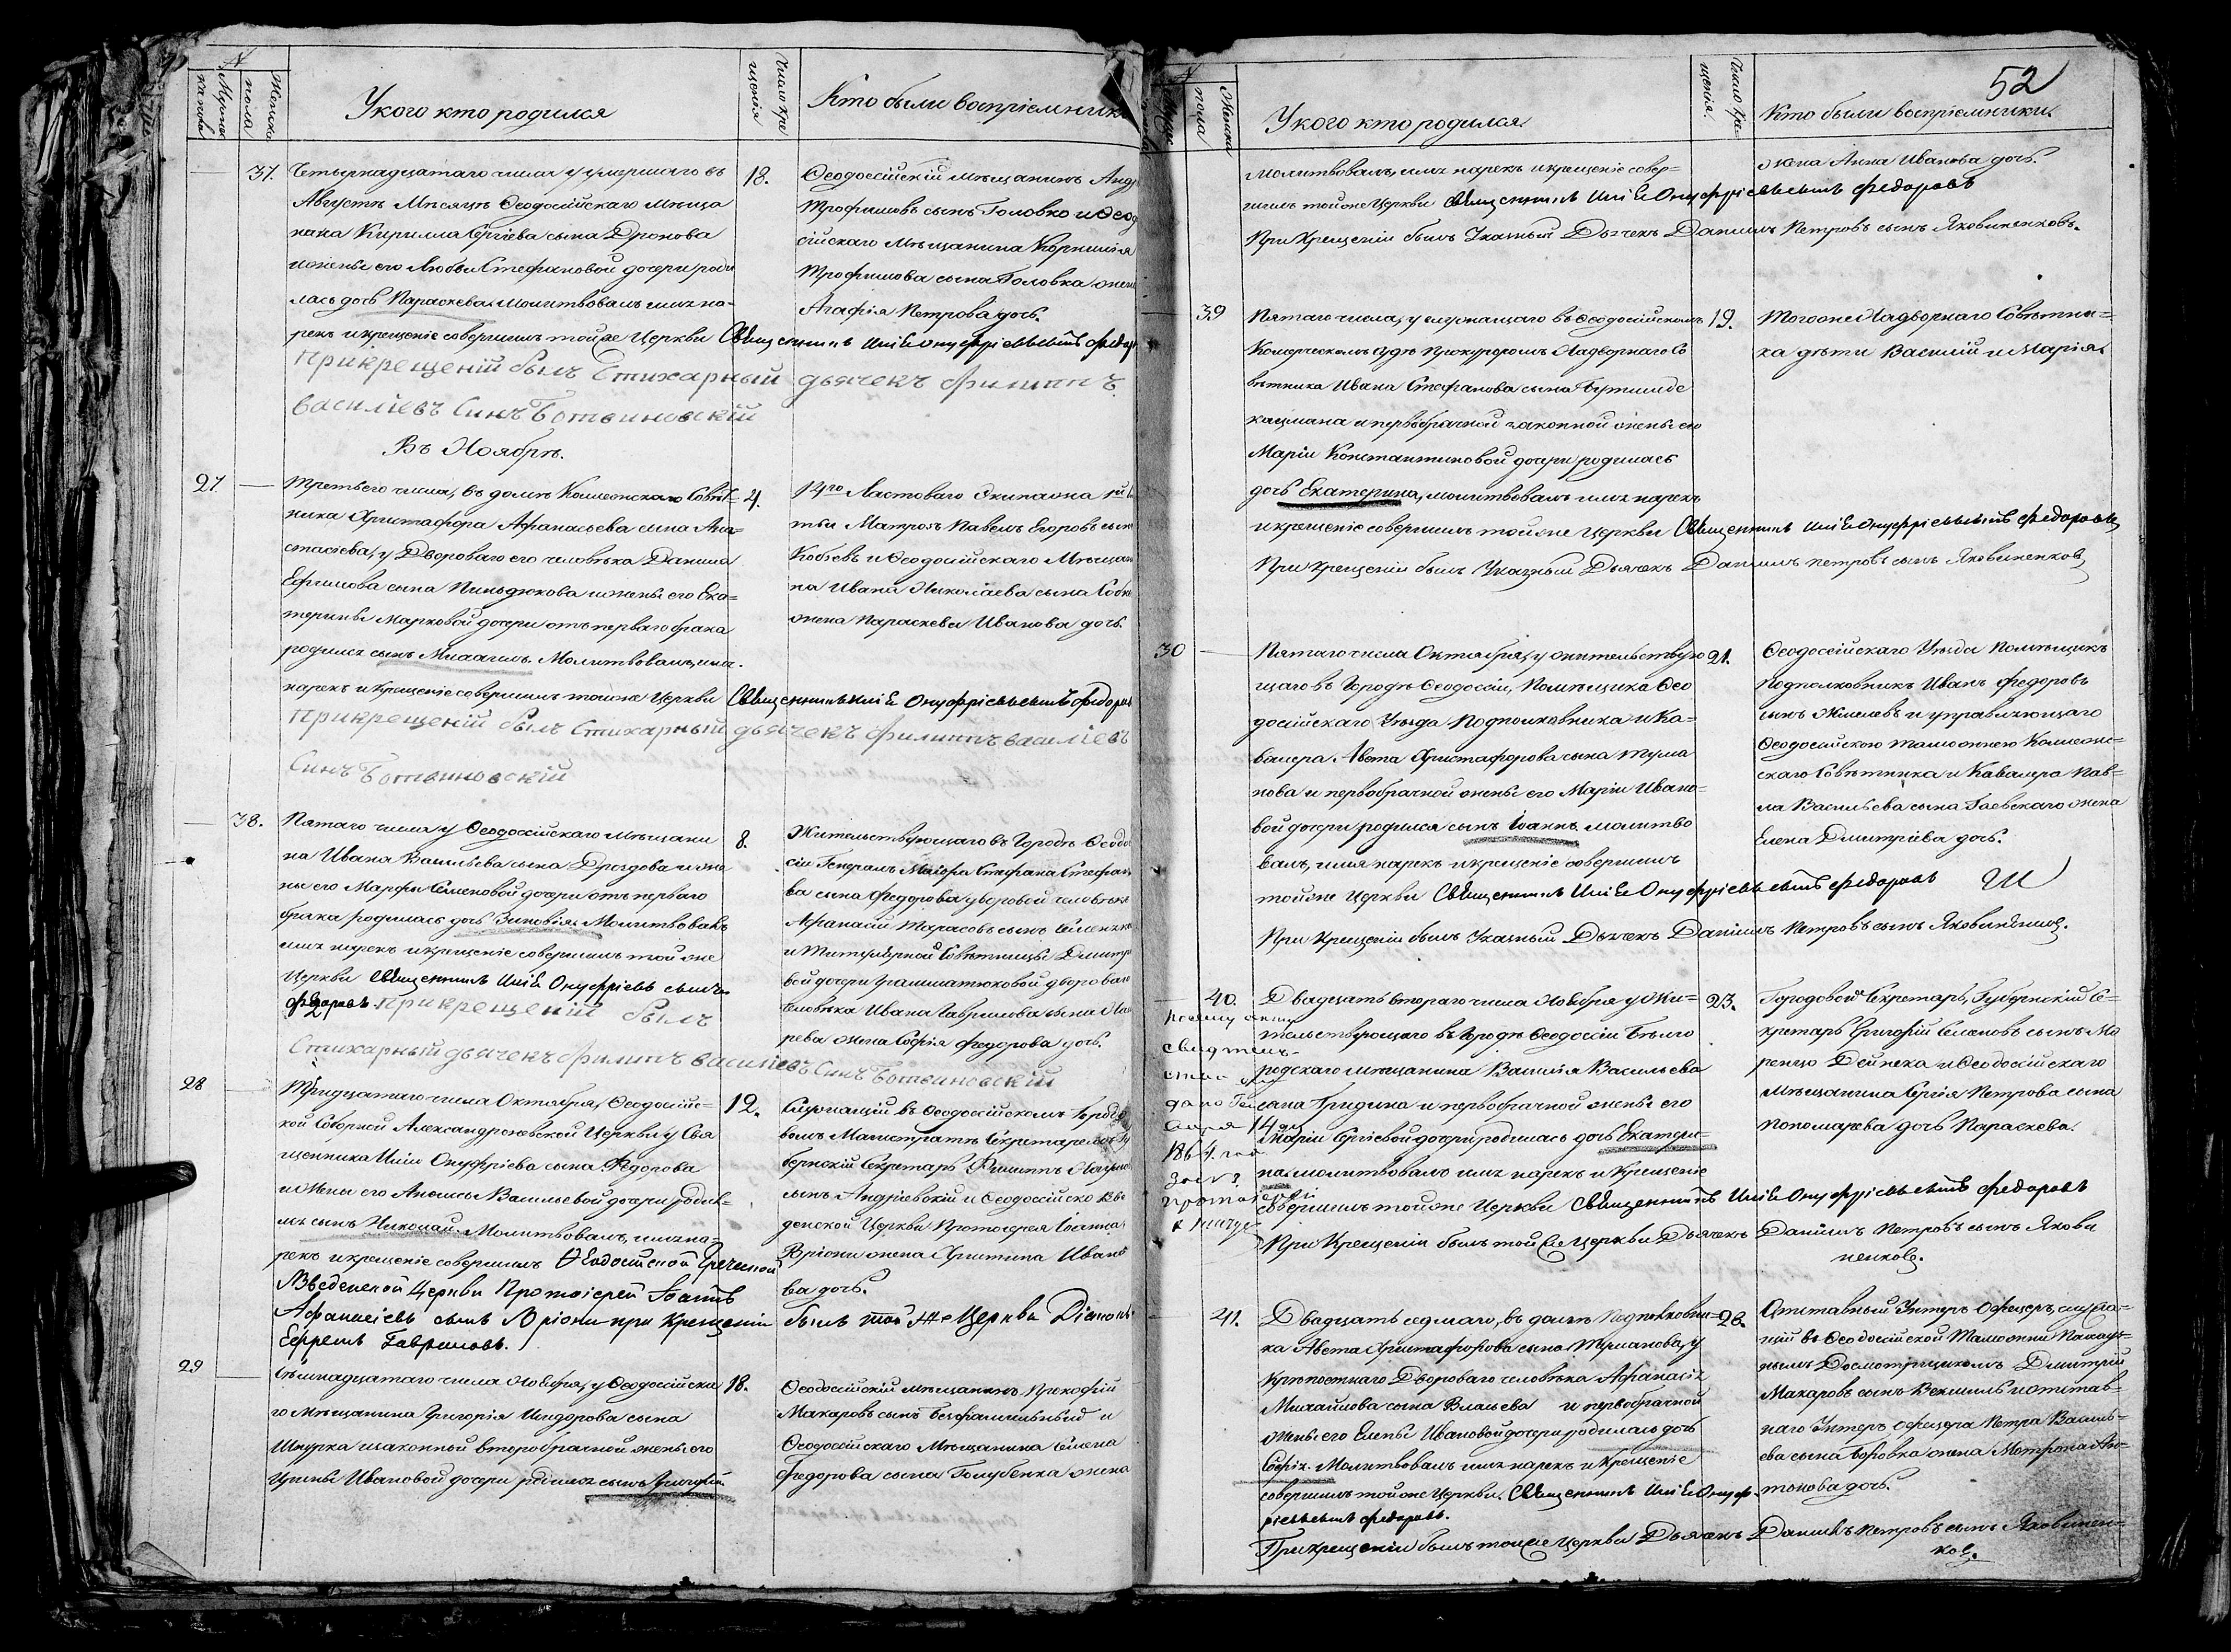 Мужска
пола
Женска
пола
У кого кто родился
Число кре
щенія
Кто были воспріемники
37.
Четырнадцатаго числа у умершаго въ
Августѣ Мѣсяцѣ Ѳеодосійскаго мѣща
нина Кирилла Сергіева сына Дронова
и жены его Любви Стефановой дочери роди
лась дочь Параскева. Молитвовалъ имя на-
рекъ и крещеніе совершилъ той же Церкви Священникъ Илія Онуфріевъ сынъ Федор
при крещеній былъ Стихарный дьячекъ Филиппъ
василіевъ Синъ Ботвиновскій
18.
Ѳеодосійскій мѣщанинъ Анд
Трофимовъ сынъ Головко и Ѳеод
сійскаго Мѣщанина Корнилія
Трофимова сына Головка жен
Агафія Петрова дочь.
Въ Ноябрѣ.
27
Третьего числа, въ домѣ Коллежскаго Совѣт-
ника Христафора Афанасьева сына Ана-
стасіева, у Двороваго его человѣка Данила
Ефимова сына и жены его Ека-
терины Марковой дочери отъ перваго брака
родился сынъ Михаилъ. Молитвовалъ, имя
нарекъ и крещеніе совершилъ той же Церкви Священникъ Илія Онуфріевъ сынъ Федоров
при крещеній былъ Стихарный дьячекъ Филиппъ василіевъ
Синъ Ботвиновскій
4.
14го Ластоваго Экипажа
Матрозъ Павелъ Егоровъ сын
и Ѳеодосійскаго Мѣщан
на Ивана Николаева сына
жена Параскева Иванова дочь.
38.
Пятаго числа у Ѳеодосійскаго мѣщани
на Ивана Васильева сына Дроздова и же
ны его Марфы Семеновой дочери отъ перваго
брака родилась дочь Зиновія. Молитвовалъ
имя нарекъ и крещеніе совершилъ той же
Церкви Священникъ Илія Онуфріевъ сынъ
Федоровъ. при крещеній былъ
Стихарный дьячекъ Филипъ василіевъ Синъ Ботвиновскій
8.
Жительствующаго въ Городѣ Ѳеодо
сіи Генералъ Маіора Стефана Стефан
ва сына Федорова дворовой человѣкъ
Афанасій Тарасовъ сынъ
и Титулярной Совѣтницы Дмитр
вой дочери Грамматиковой двороваго
человѣка Ивана Гаврилова сына
рева жена Софія Федорова дочь.
28
Тридцатаго числа Октября, Ѳеодосійс-
кой Соборной Александроневской Церкви у Свя
щенника Иліи Онуфріева сына Федорова
и жены его Анисьи Васильевой дочери родил-
ся сынъ Николай. Молитвовалъ, имя на-
рекъ и крещеніе совершилъ Ѳеодосійской Греческой
Введенской Церкви Протоіерей Іоаннъ
Афанасіевъ сынъ Вріони при крещеніи былъ той же Церкви Діаконъ
Ефремъ Гавриловъ.
12.
Служащій въ Ѳеодосійскомъ Городо
вомъ Магистратѣ Секретаремъ Гу
бернскій Секретарь Филиппъ
сынъ Андріевскій и Ѳеодосійско Вве
денской Церкви Протоіерея Іоанна
Вріони жена Христина Ивано
ва дочь.
29
Семнадцатаго числа Ноября, у Ѳеодосійска
го Мѣщанина Григорія Исидорова сына
Шкурка и законной второбрачной жены его
Ирины Ивановой дочери родился сынъ Григорій
18.
Ѳеодосійскій мѣщанинъ Прокофій
Макаровъ сынъ Безфамильный и
Ѳеодосійскаго Мѣщанина Семена
Федорова сына Голубенка жена
52
Женска
пола
У кого кто родился
Число кре
щенія.
Кто были воспріемники.
Молитвовалъ, имя нарекъ и крещеніе совер-
шилъ той же Церкви Священникъ Илія Онуфріевъ сынъ Федоровъ
При Крещеніи былъ Указный Дьячекъ Даніилъ Петровъ сынъ Яковиненковъ.
жена Анна Иванова дочь.
39
Пятаго числа, у служащаго въ Ѳеодосійскомъ
Комерческомъ судѣ Прокуроромъ Надворнаго Со
вѣтника Ивана Стефанова сына
кацмана и первобрачной законной жены его
Маріи Константиновой дочери родилась
дочь Екатерина, молитвовалъ имя нарекъ
и крещеніе совершилъ той же Церкви Священникъ Илія Онуфріевъ сынъ Федоровъ
При Крещеніи былъ Указный Дьячекъ Даніилъ Петровъ сынъ Яковиненковъ
19.
Того же Надворнаго Совѣтни-
ка дѣти Василій и Марія.
30
Пятаго числа Октября, у жительствую
щаго въ Городѣ Ѳеодосіи, Помѣщика Ѳео
досійскаго Уѣзда Подполковника и Ка-
валера Авета Христафорова сына Тума
нова и первобрачной жены его Маріи Ивано-
вой дочери родился сынъ Іоаннъ. молитво
валъ, имя нарекъ и крещеніе совершилъ
той же Церкви Священникъ Илія Онуфріевъ сынъ Федоровъ
При Крещеніи былъ Указный Дьячекъ Даніилъ Петровъ сынъ
21.
Ѳеодосійскаго Уѣзда Помѣщикъ
Подполковникъ Иванъ Федоровъ
сынъ и управляющаго
Ѳеодосійскою таможнею Коллежс-
скаго Совѣтника и Кавалера Пав-
ла Васильева сына Гаевскаго жена
Елена Дмитріева дочь.
40.
Двадцать втораго числа Ноября у жи-
тельствующаго въ Городѣ Ѳеодосіи Бѣлго
родскаго мѣщанина Василія Васильева
сына Гридина и первобрачной жены его
Маріи Сергіевой дочери родилась дочь Екатери-
на. молитвовалъ имя нарекъ и Крещеніе
совершилъ той же Церкви Священникъ Илія Онуфріевъ сынъ Федоровъ
При Крещеніи былъ той же Церкви Дьячекъ Даніилъ Петровъ сынъ Якови
ненковъ.
свидтель-
дано Ген
14
1864. год
23.
Городовой Секретарь, Губернскій Се-
кретарь Григорій Семеновъ сынъ Ма
ренцо Дейнека и Ѳеодосійскаго
мѣщанина Сергія Петрова сына
Пономарева дочь Параскева.
41.
Двадцать седмаго, въ домѣ Подполковни-
ка Авета Христафорова сына Туманова, у
крѣпостнаго Двороваго человѣка Афанасія
Михайлова сына Власьева и первобрачной
жены его Елены Ивановой дочери родилась дочь
Софія. Молитвовалъ имя нарекъ и Крещеніе
совершилъ той же Церкви. Священникъ Илія Онуф-
ріевъ сынъ Федоровъ.
При крещеніи былъ той же Церкви Дьячекъ Даніилъ Петровъ сынъ Яковинен-
ковъ.
28.
Отставный Унтеръ Офицеръ, служа-
щій въ Ѳеодосійской Таможни
Досмотрщикомъ Дмитрій
Макаровъ сынъ и отстав-
наго Унтеръ Офицера Петра Василь-
ева сына Боровка жена Матрона Ан-
тонова дочь.